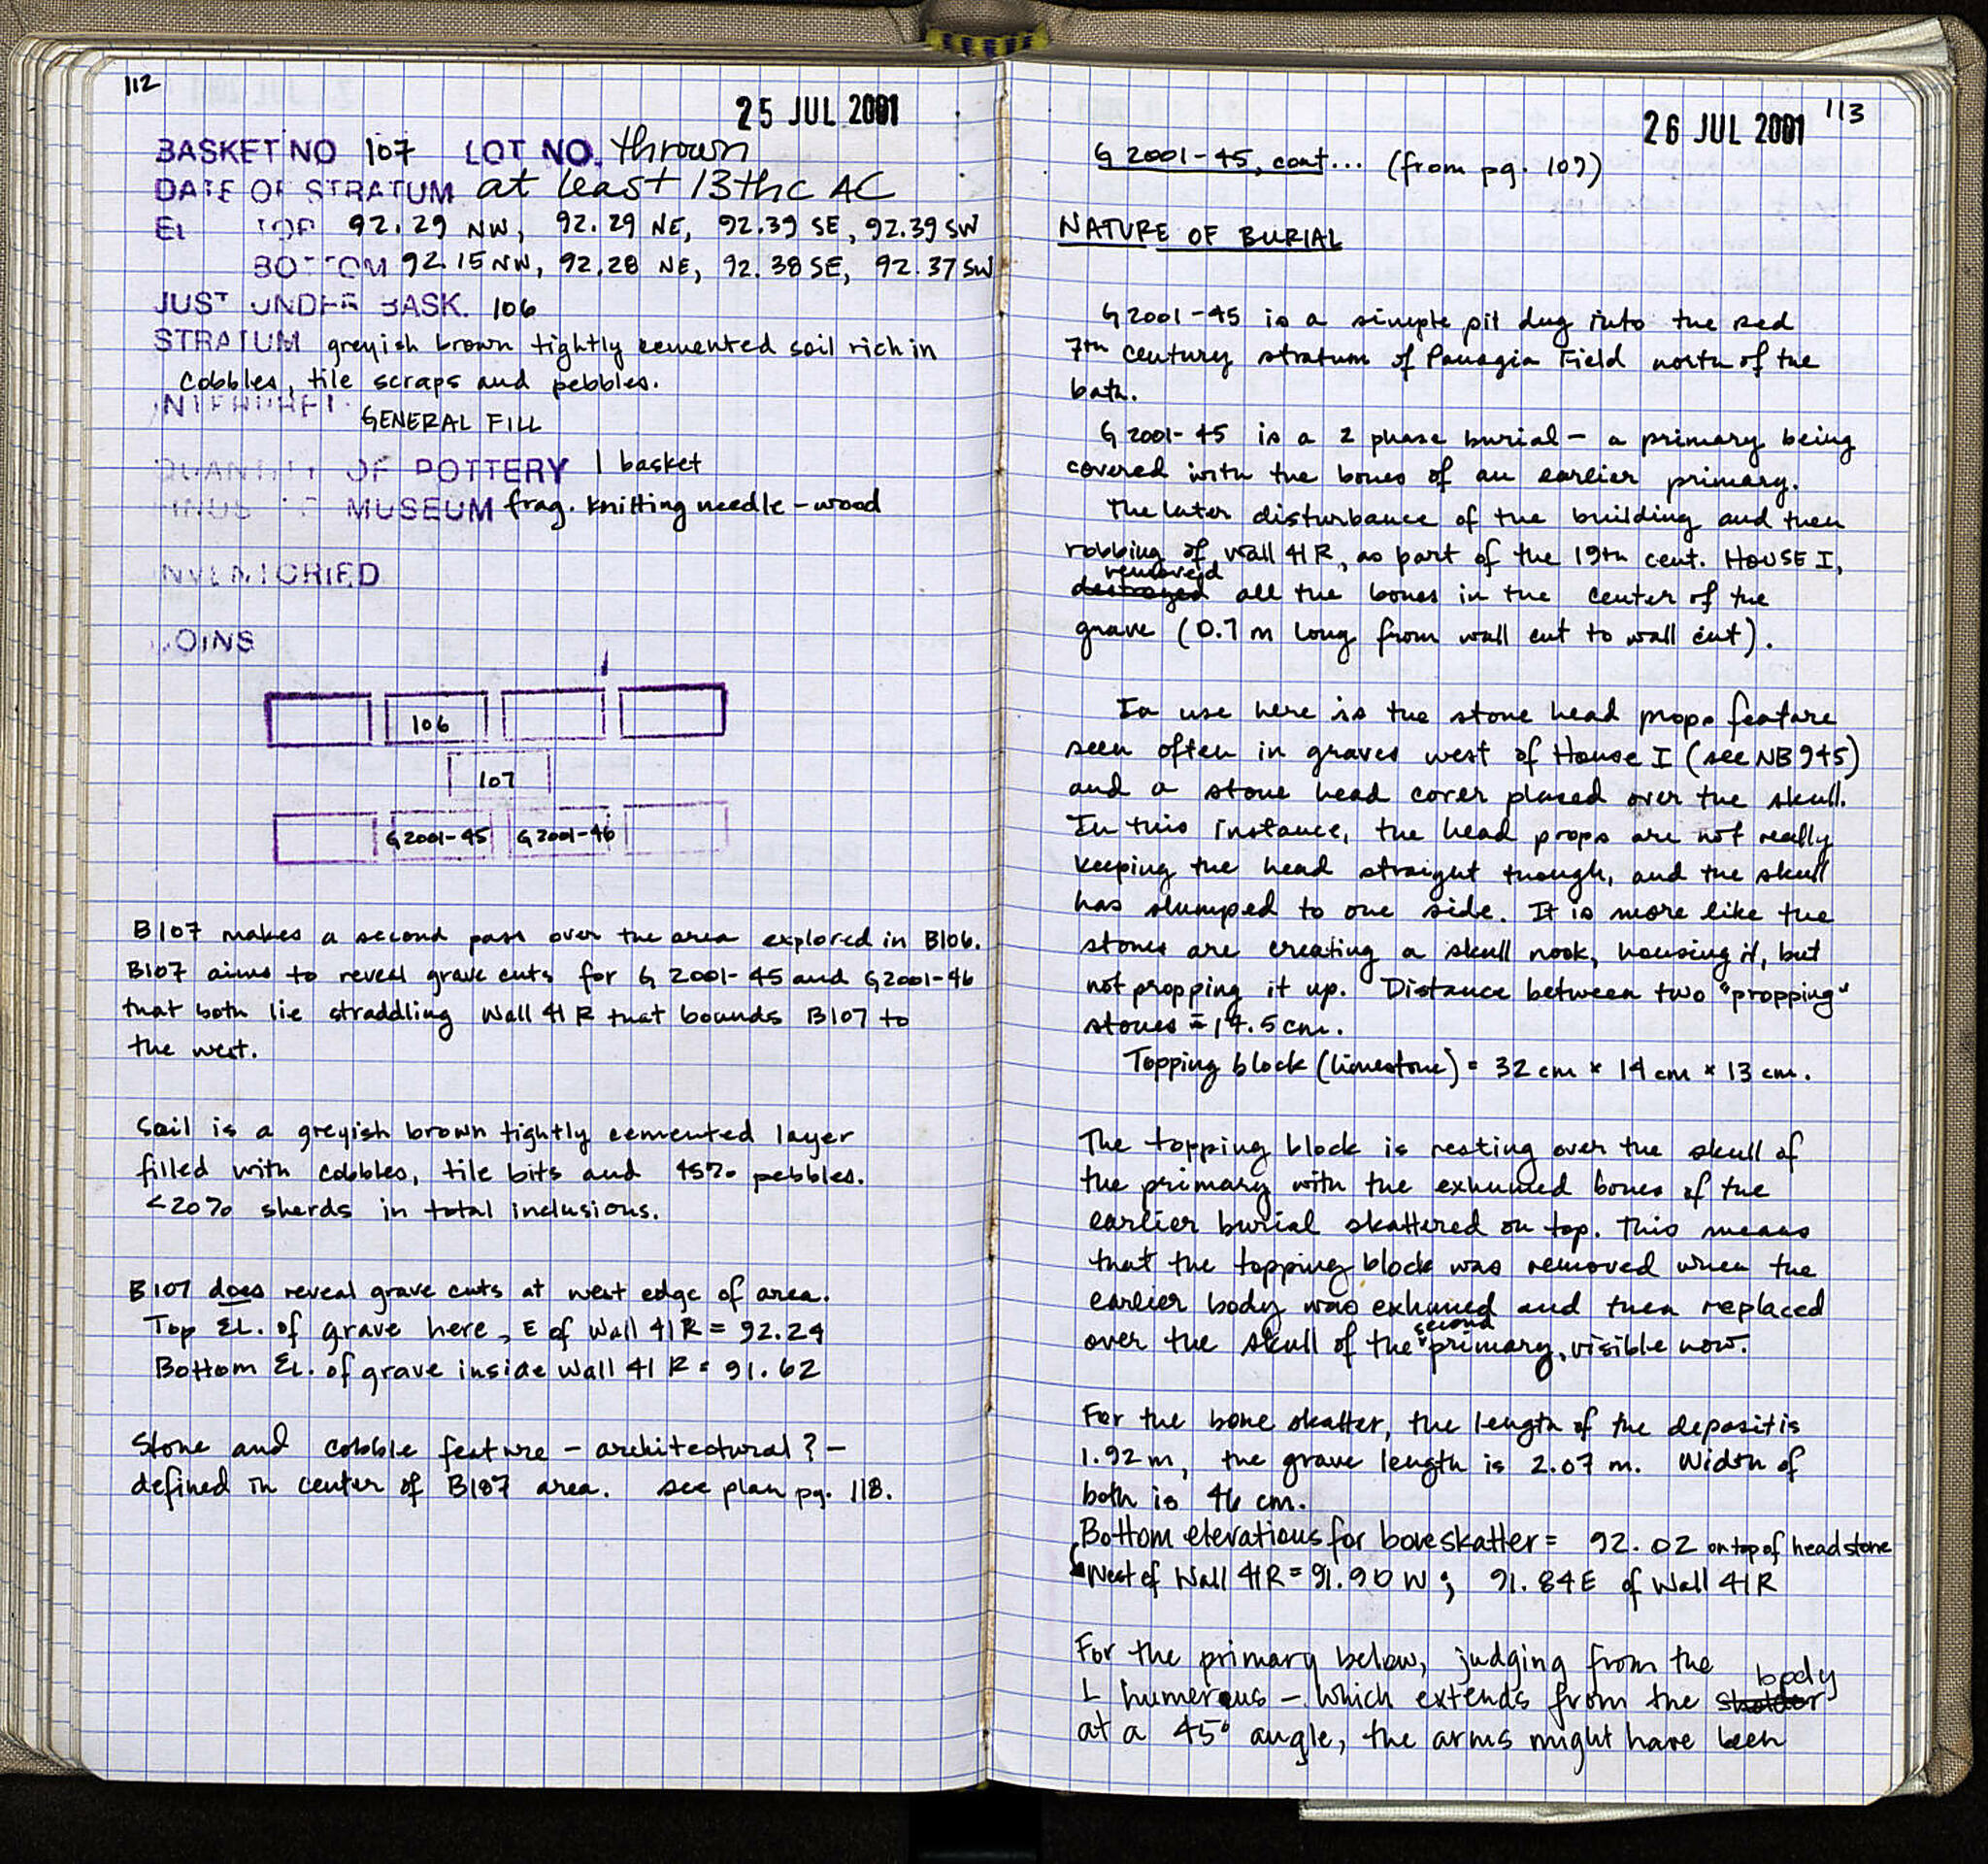 112
25 JUL 2001
BASKET NO 107 LOT NO. thrown
DATE OF STRATUM at least 13thc AC
EL TOP 92.29 NW, 92.29 NE, 92.39 SE, 92.39 SW
BOTTOM 92.15 NW, 92.28 NE, 92.38 SE, 92.37 SW
JUST UNDER BASK. 106
STRATUM greyish brown tightly cemented soil rich in
cobbles, tile scraps and pebbles.
INTERPRET.
GENERAL FILL
QUANTITY OF POTTERY 1 basket
FINDS TO MUSEUM frag. knitting needle - wood
INVENTORIED
COINS
106
107
G2001-45 G2001-46
B107 makes a second pass over the area explored in B106.
B107 aims to reveal grave cuts for G 2001-45 and G2001-46
that both lie straddling Wall 41 R that bounds B107 to
the west.
Soil is a greyish brown tightly cemented layer
filled with cobbles, tile bits and 45% pebbles.
<20% sherds in total inclusions.
B107 does reveal grave cuts at west edge of area.
Top EL. of grave here, E of Wall 41R = 92.24
Bottom EL. of grave inside Wall 41 R = 91.62
Stone and cobble feature - architectural? -
defined in center of B107 area. see plan pg. 118.
26 JUL 2001
113
G 2001-45, cont... (from pg. 109)
NATURE OF BURIAL
G2001-45 is a simple pit dug into the red
7th century stratum of Panagia Field north of the
bath.
G 2001-45 is a 2 phase burial - a primary being
covered with the bones of an earlier primary.
The later disturbance of the building and then
robbing of wall 41R, as part of the 19th cent. HOUSE I,
removed
destroyed all the bones in the center of the
grave (0.7 m long from wall cut to wall cut).
In use here is the stone head props feature
seen often in graves west of House I (see NB 945)
and a stone head cover placed over the skull.
In this instance, the head props are not really
keeping the head straight though, and the skull
has slumped to one side. It is more like the
stones are creating a skull nook, housing it, but
not propping it up. Distance between two "propping"
stones = 14.5 cm.
Topping block (limestone) = 32 cm x 14 cm x 13 cm.
The topping block is resting over the skull of
the primary with the exhumed bones of the
earlier burial skattered on top. This means
that the topping block was removed when the
earlier body was exhumed and then replaced
second
over the skull of the primary, visible now.
For the bone skatter, the length of the deposit is
1.92 m, the grave length is 2.07 m. Width of
both is 46 cm.
Bottom elevations for bone skatter = 92.02 on top of head stone
West of Wall 41R = 91.90 W; 91.84 E of Wall 41R
For the primary below, judging from the
body
L humerous - which extends from the sholder
at a 45° angle, the arms might have been